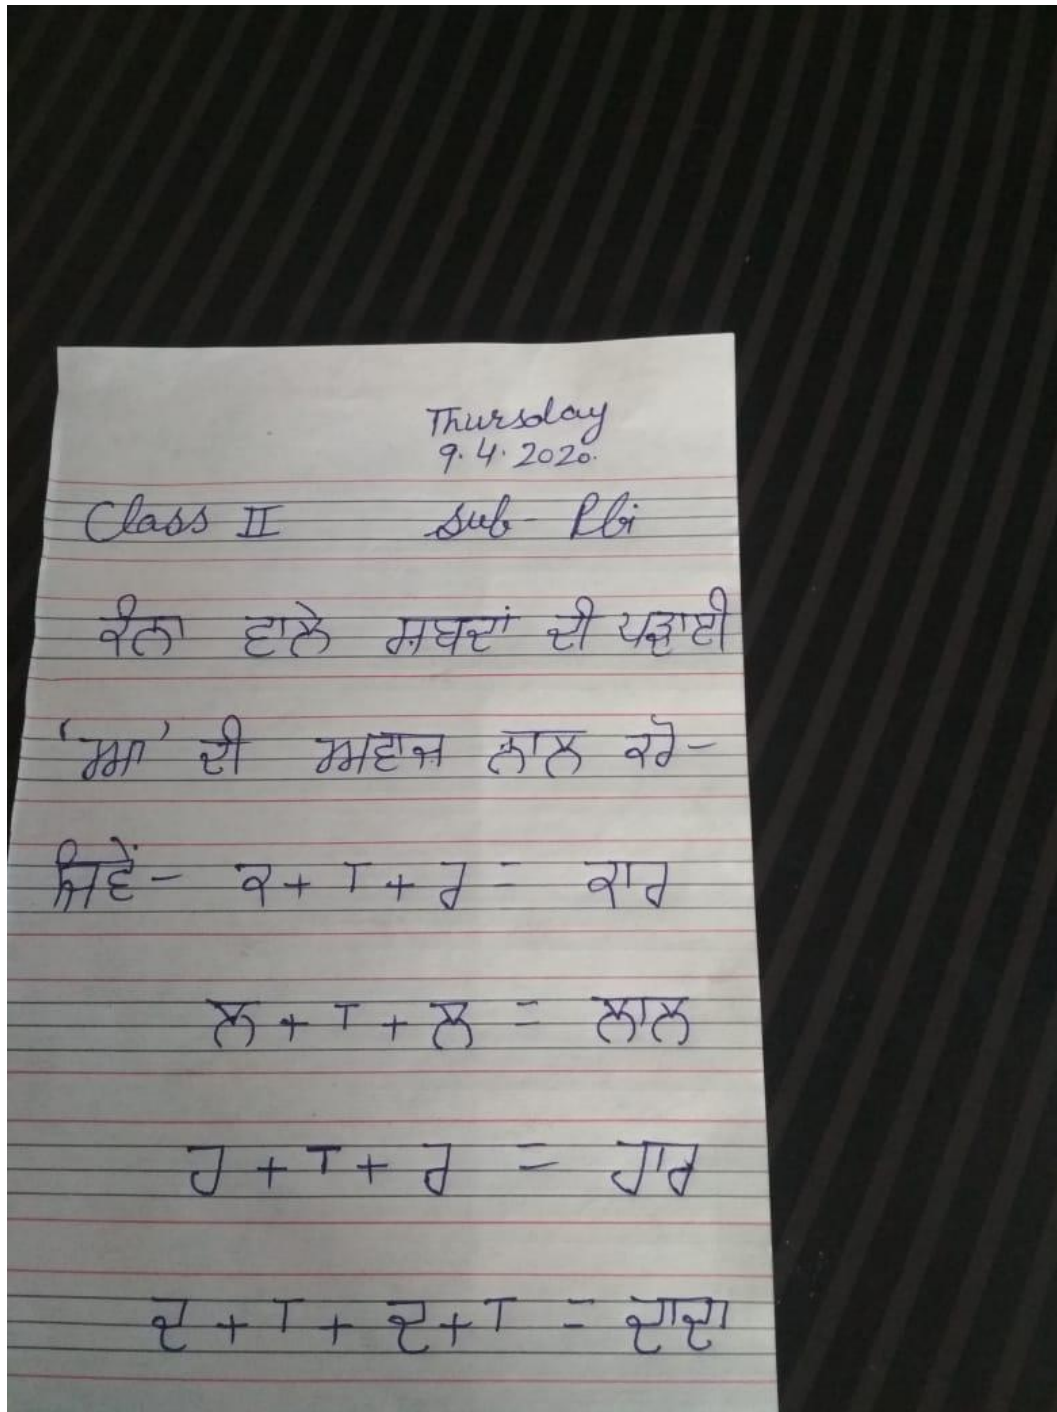 Thursday
9.4.2020.
Class II Sub- Pbi
ਕੰਨਾ ਵਾਲੇ ਸ਼ਬਦਾਂ ਦੀ ਪੜ੍ਹਾਈ
'ਆ' ਦੀ ਅਵਾਜ਼ ਨਾਲ ਕਰੋ-
ਜਿਵੇਂ- ਕ + ਾ + ਰ = ਕਾਰ
ਲ + ਾ + ਲ = ਲਾਲ
ਹ + ਾ + ਰ = ਹਾਰ
ਦ + ਾ + ਦ + ਾ = ਦਾਦਾ